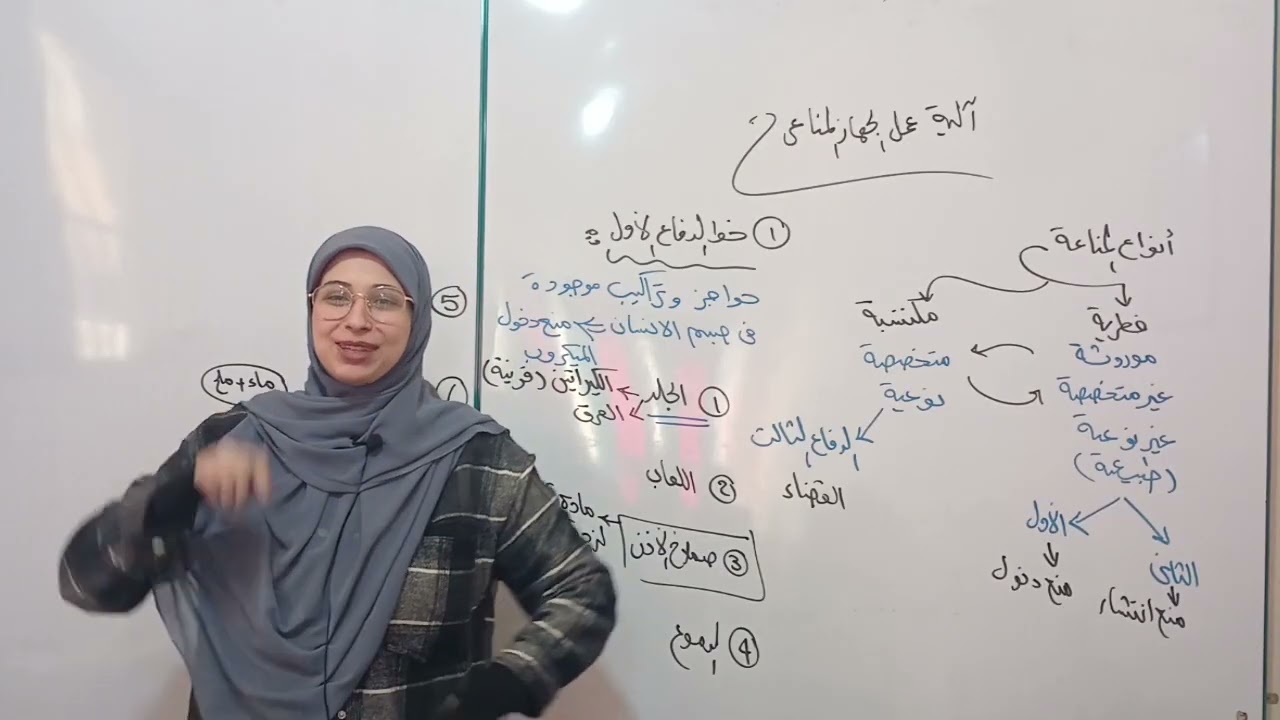 آلية عمل الجهاز المناعى
أنواع المناعة
فطرية
موروثة
غير متخصصة
غير نوعية
(طبيعية)
الأول
منع دخول
الثانى
منع انتشار
مكتسبة
متخصصة
نوعية
الدفاع الثالث
القضاء
① خط الدفاع الأول :
حواجز وتراكيب موجودة
فى جسم الانسان منع دخول
الميكروب
① الجلد الكيراتين (قرنية)
العرق
② اللعاب
③ صملاخ الأذن مادة
④ الدموع
⑤